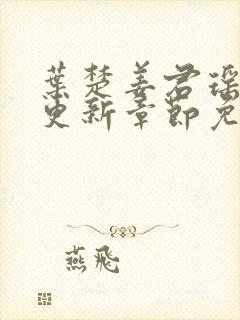 葉楚姜君瑶
更新章節免
燕飛